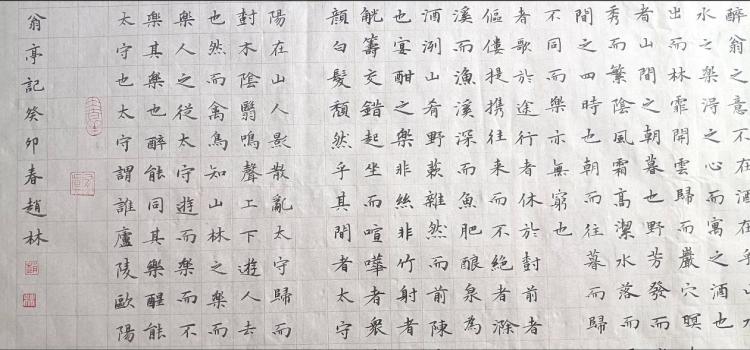 醉翁之意不在酒在乎山
水之樂得之心而寓之酒也
出而林霏開雲歸而巖穴暝
者山間之朝暮也野芳發而
秀而繁陰風霜高潔水落而
間之四時也朝而往暮而歸
不同而樂亦無窮也
者歌於途行者休於樹前者
傴僂提携往来而不絕者滁
溪而漁溪深而魚肥釀泉為
酒洌山肴野蔌雜然而前陳
也宴酣之樂非絲非竹射者
觥籌交錯起坐而喧嘩者衆
顏白髮頹然乎其間者太守
陽在山人影散亂太守歸而
樹木陰翳鳴聲上下遊人去
也然而禽鳥知山林之樂而
樂人之從太守遊而樂而不
樂其樂也醉能同其樂醒能
太守也太守謂誰廬陵歐陽
翁亭記癸卯春趙林